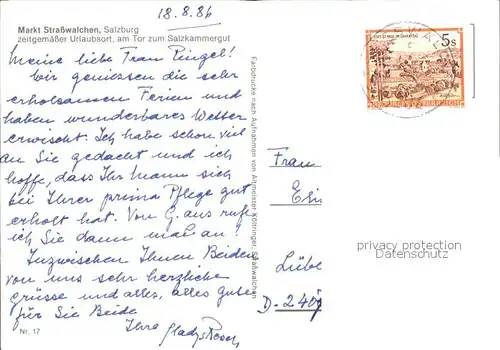 18.8.86
Markt Straßwalchen, Salzburg
zeitgemäßer Urlaubsort, am Tor zum Salzkammergut
Meine liebe Frau Pingel!
Wir geniessen die sehr
erholsamen Ferien und
haben wunderbares Wetter
erwischt. Ich habe schon viel
an Sie gedacht und ich
hoffe, dass Ihr Mann sich
bei Ihrer prima Pflege gut
erholt hat. Von G. aus rufe
ich Sie dann mal an!
Inzwischen Ihnen Beiden
von uns sehr herzliche
Grüsse und alles, alles Gute
für Sie Beide
Ihre Gladys
Nr. 17
Farbdrucke nach Aufnahmen von Altmeister Köttringer, Straßwalchen
5s
REPUBLIK ÖSTERREICH
Frau
Lübe
D-240
privacy protection
Datenschutz